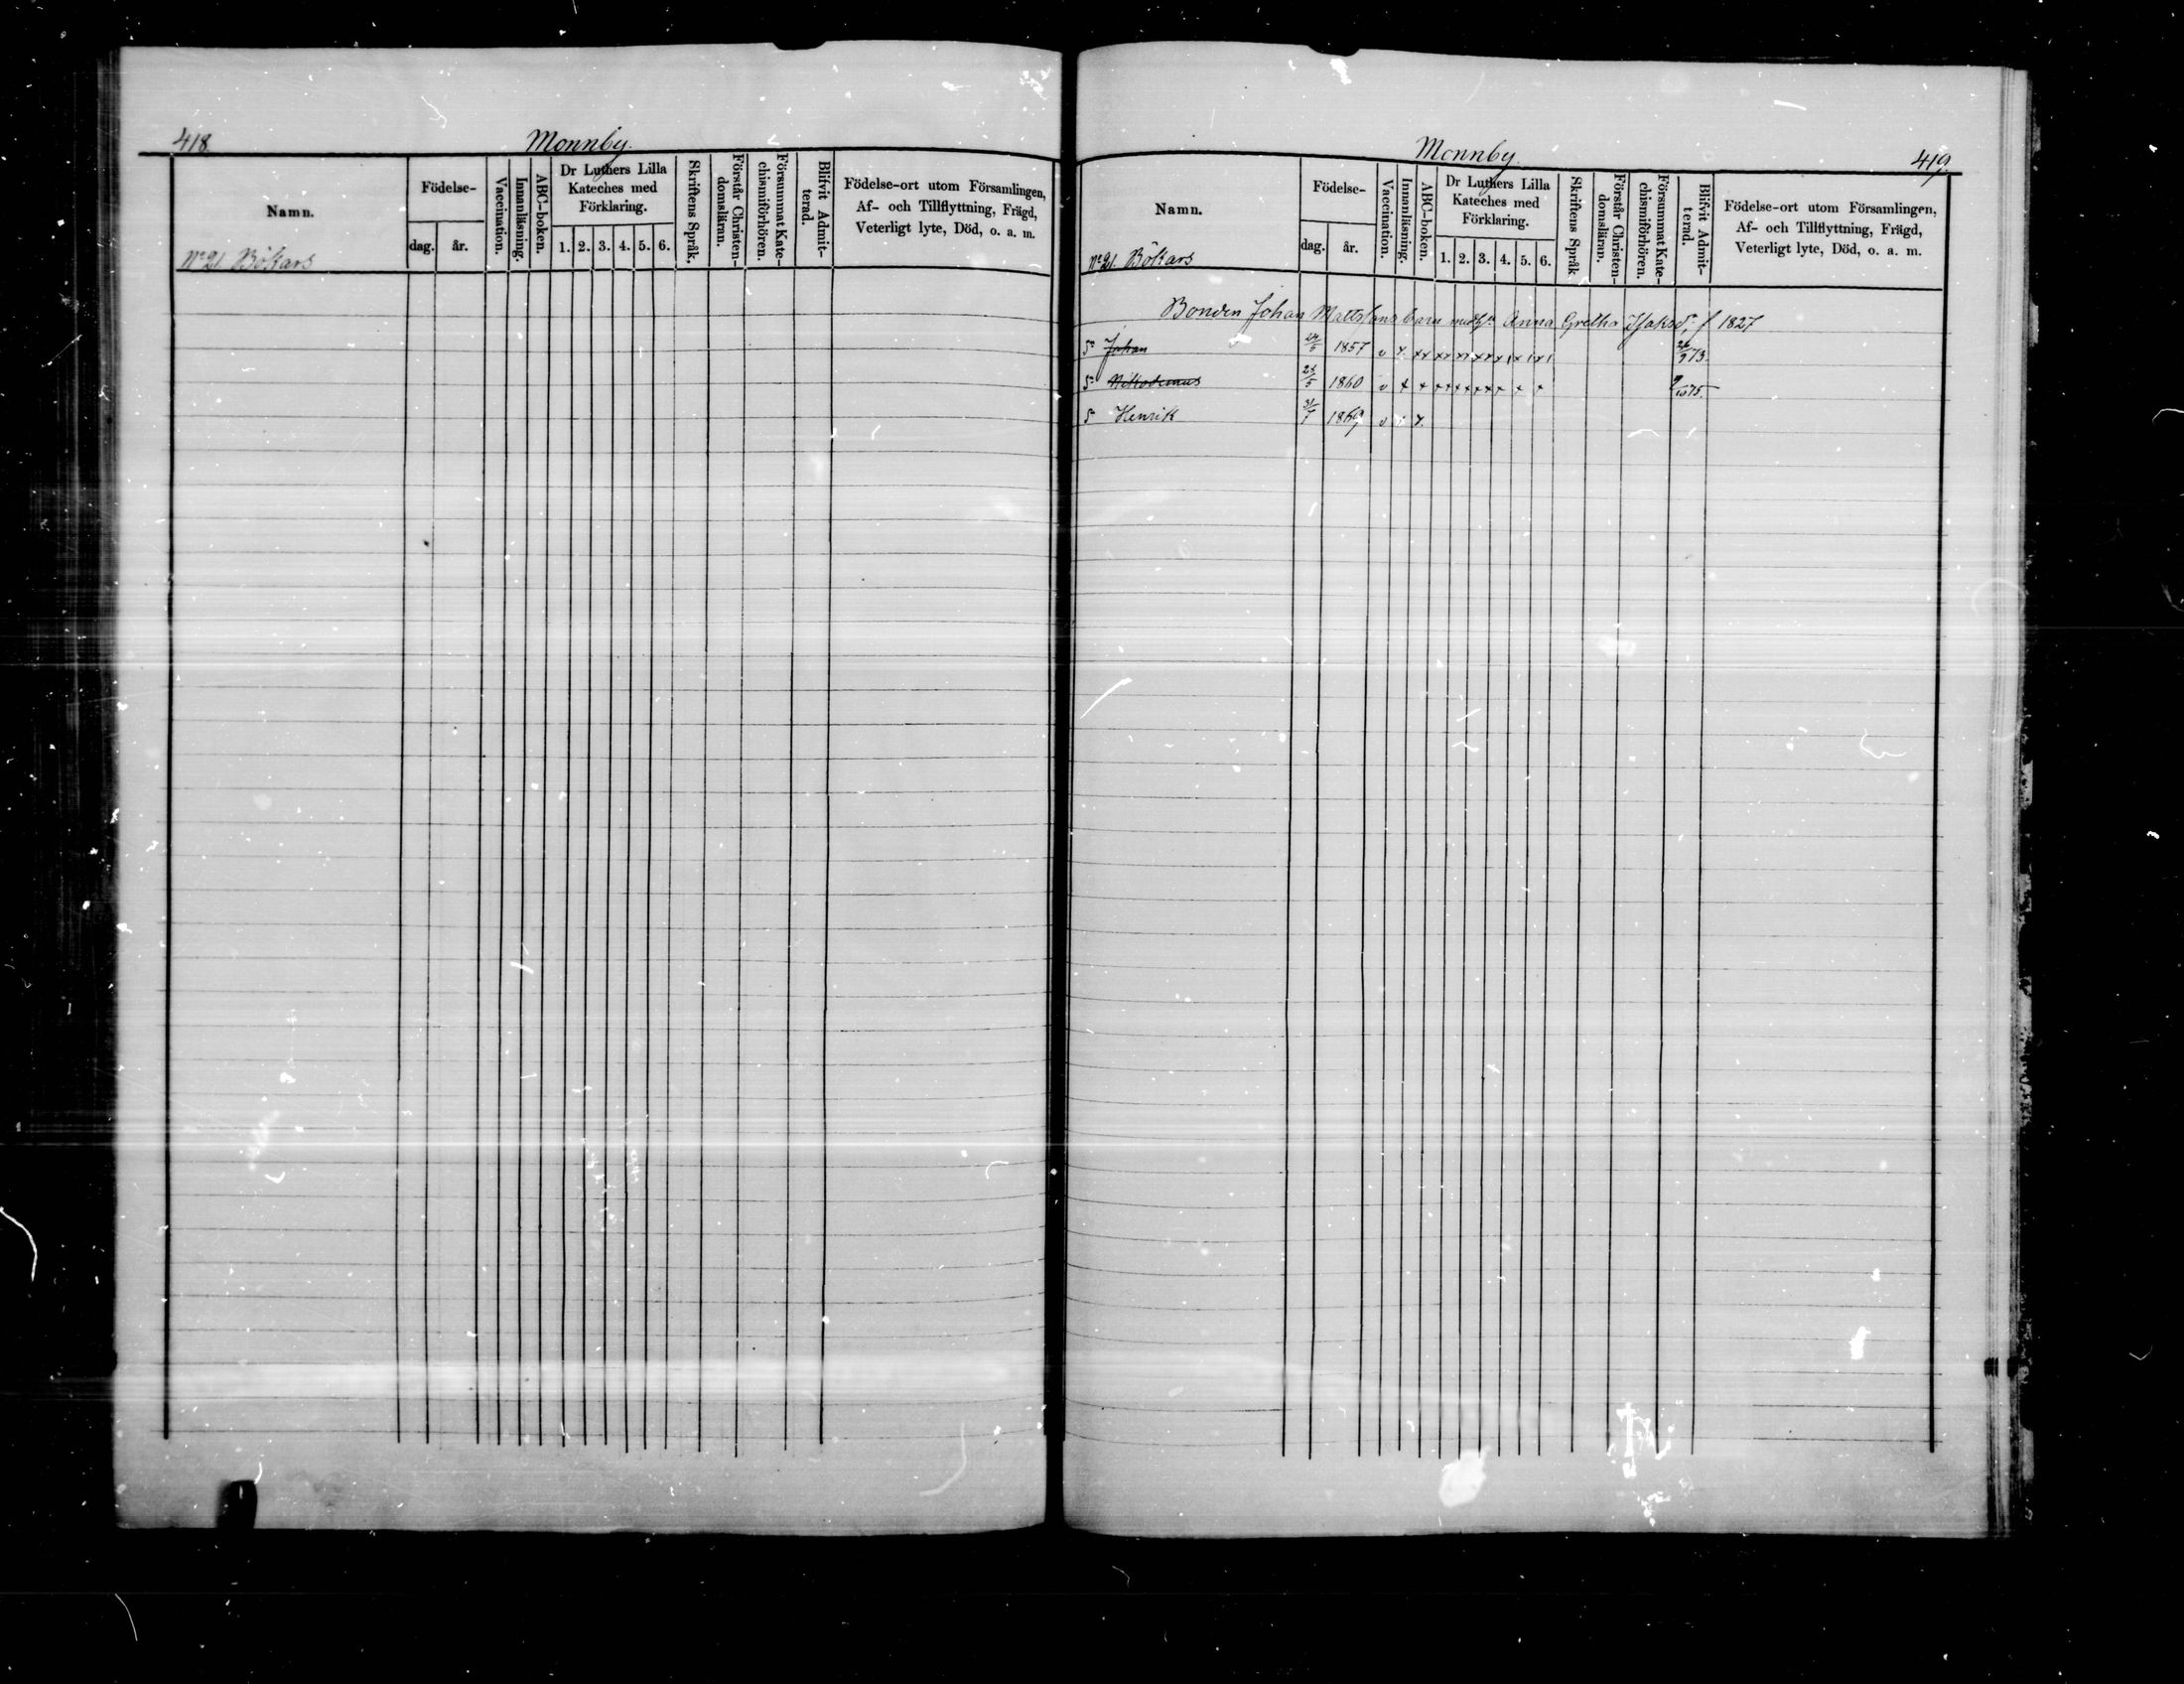 418
Monnby.
Namn.
Födelse-
dag.
år.
Vaccination.
Innanläsning.
ABC-boken.
Dr Luthers Lilla
Kateches med
Förklaring.
1. 2. 3. 4. 5. 6.
Skriftens Språk.
Förstår Christen-
domsläran.
Försummat Kate-
chismiförhören.
Blifvit Admit-
terad.
Födelse-ort utom Församlingen,
Af- och Tillflyttning, Frägd,
Veterligt lyte, Död, o. a. m.
No 21. Bökars
Monnby.
419.
Namn.
Födelse-
dag.
år.
Vaccination.
Innanläsning.
ABC-boken.
Dr Luthers Lilla
Kateches med
Förklaring.
1. 2. 3. 4. 5. 6.
Skriftens Språk
Förstår Christen-
domsläran.
Försummat Kate-
chismiförhören.
Blifvit Admit-
terad.
Födelse-ort utom Församlingen,
Af- och Tillflyttning, Frägd,
Veterligt lyte, Död, o. a. m.
No 21. Bökars
Bonden Johan Mattssons barn med Anna Gretha Isaksdr f 1827
Sn Johan 1857 v x xx xx xx xx x x x 73.
Sn Nikodemus 1860 v x x x x x x x x x x 75.
Sn Henrik 1869 v x